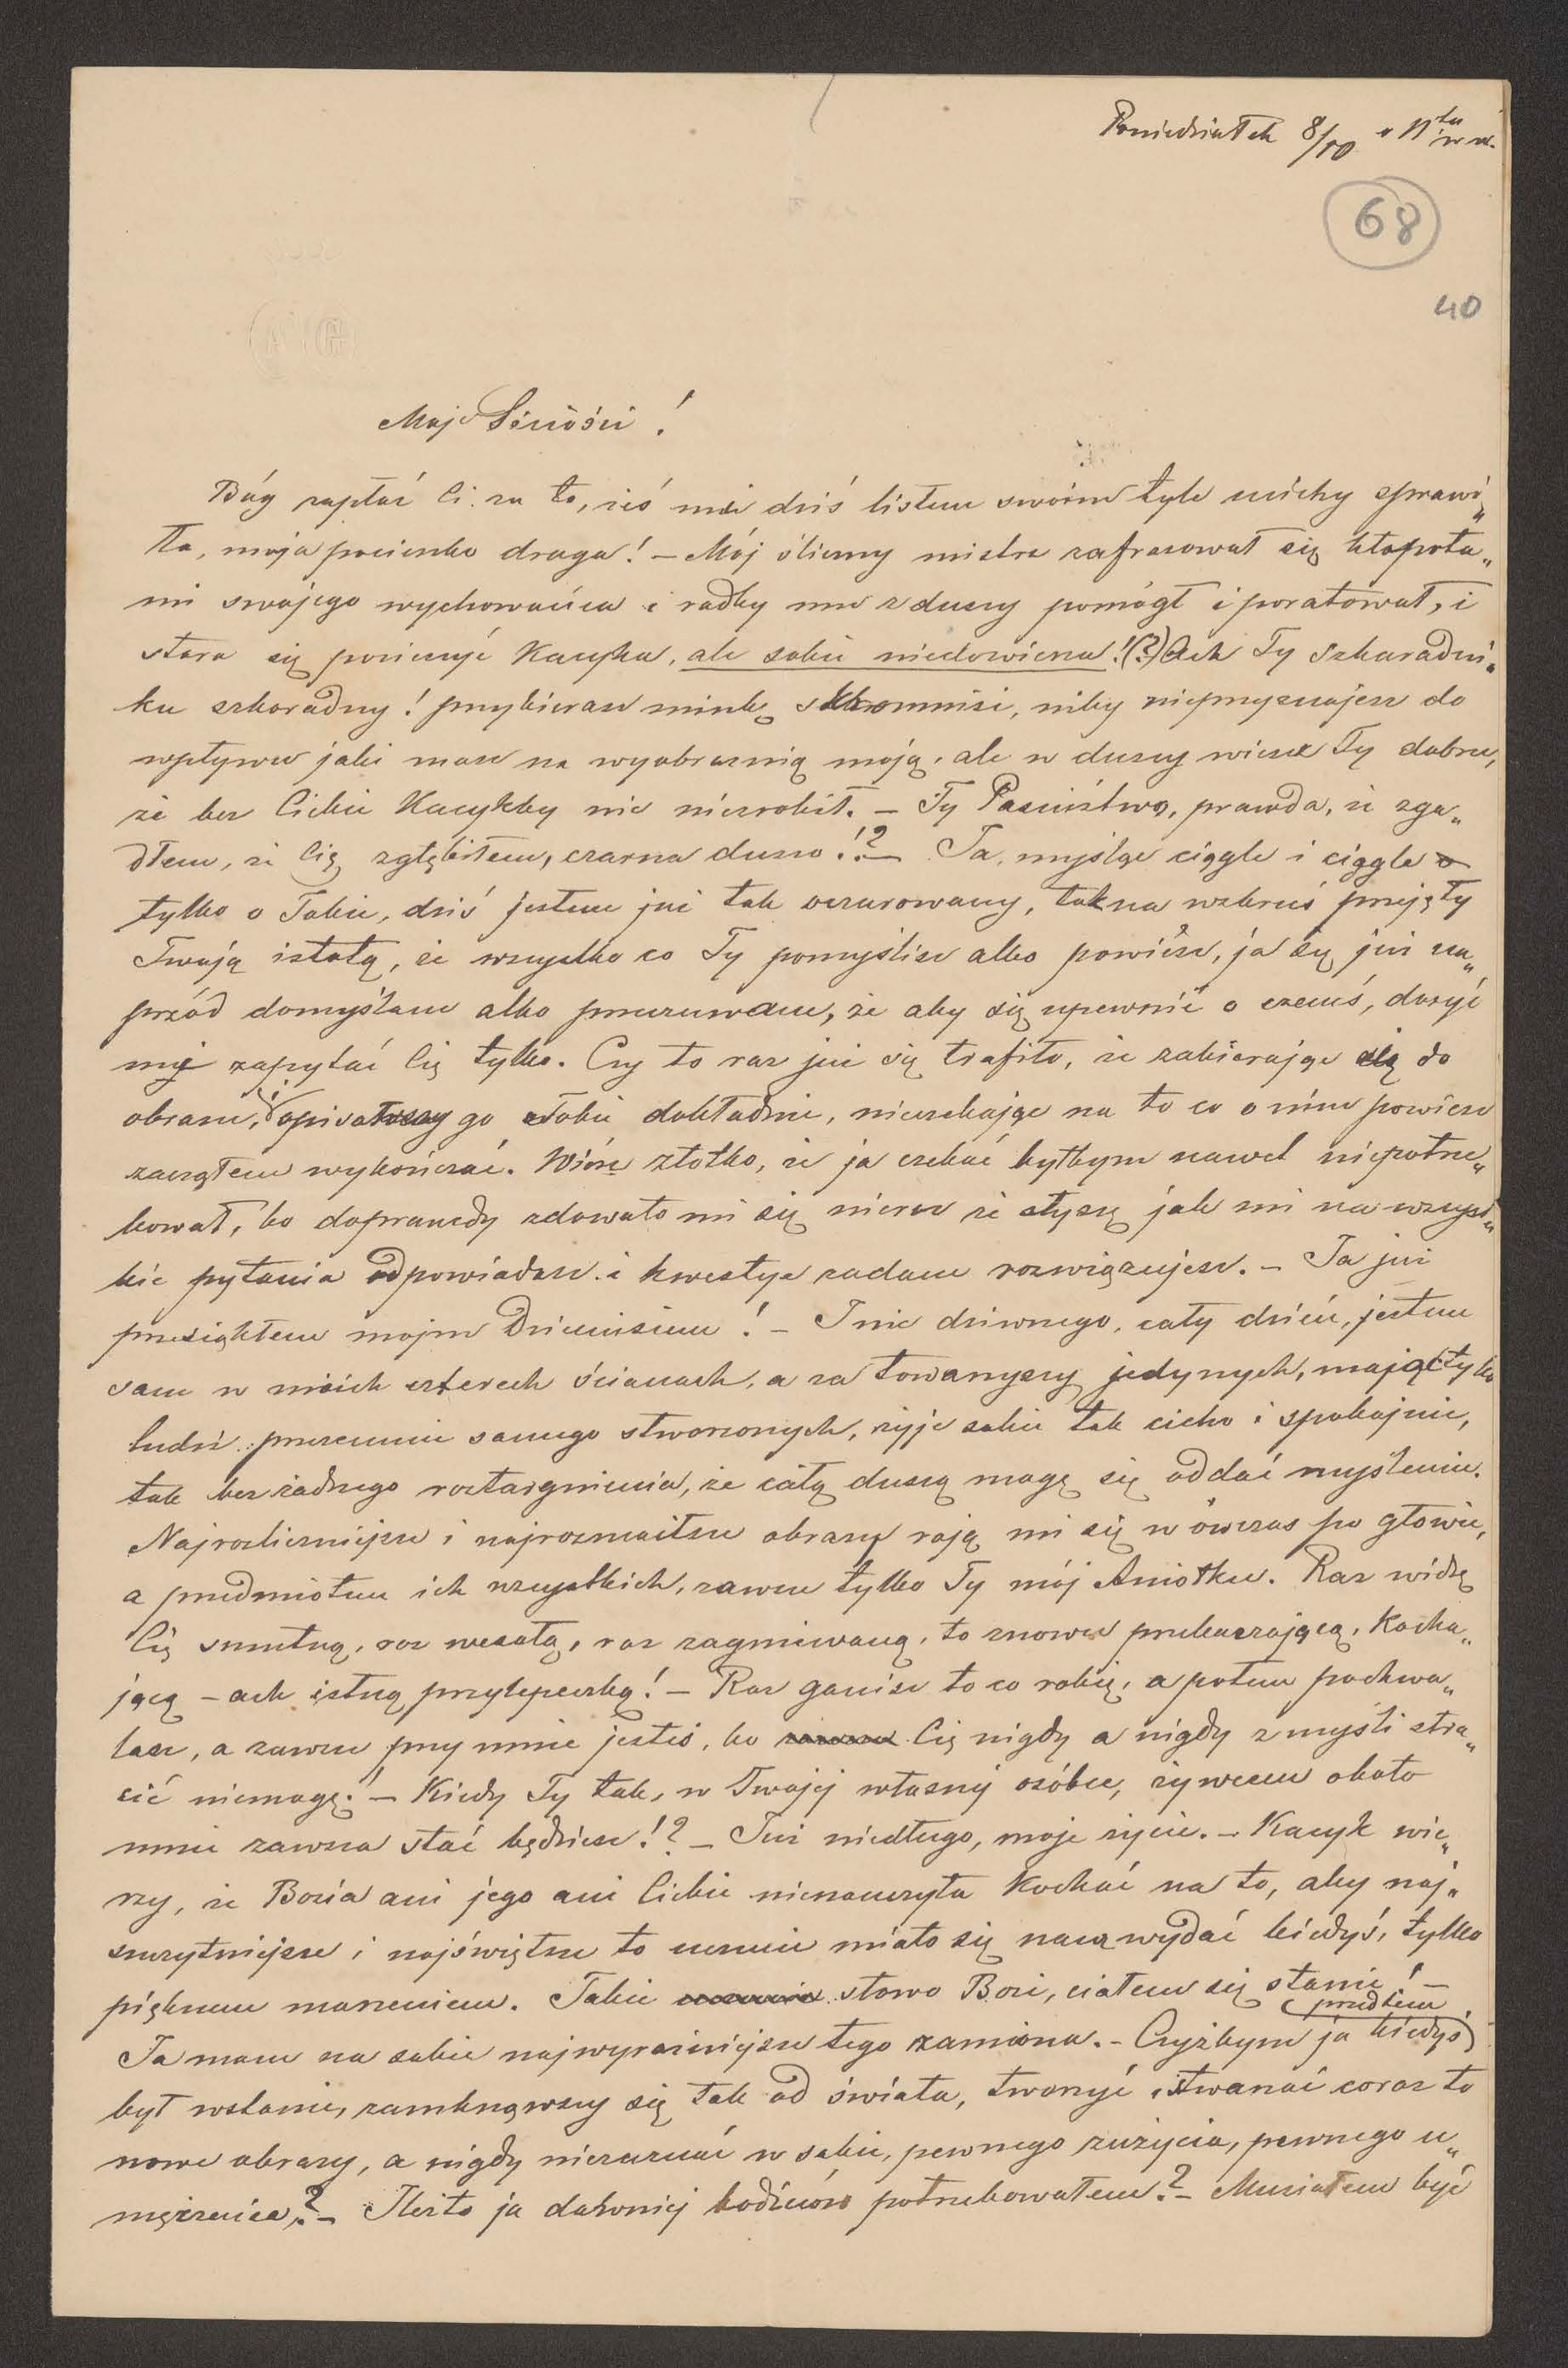 Poniedziałek 8/10 o 11tej w n.
68
40
Moje Śćiości!
Bóg zapłać Ci za to, żeś mi dziś listem swoim tyle uciéchy sprawi„
ła, moja pociecho droga! – Mój śliczny mistrz zafrasował się kłopota„
mi swojego wychowańca i radby mu z duszy pomógł i poratował, i
stara się pocieszyć Kacyka, ale sobie niedowierza!(?) Ach Ty szkaradni„
ku szkaradny! przybierasz minkę skromnisi, niby nieprzyznajesz do
wpływu jaki masz na wyobraźnią moją, ale w duszy wiesz Ty dobrze,
że bez Ciebie Kacykby nic niezrobił. – Ty Paskudztwo, prawda, że zga„
dłem, że Cię zgłębiłem, czarna duszo!? – Ja, myśląc ciągle i ciągle
tylko o Tobie, dziś jestem już tak oczarowany, tak na wskroś przejęty
Twoją istotą, że wszystko co Ty pomyślisz albo powiesz, ja się już na„
przód domyślam albo przeczuwam, że aby się upewnić o czemś, dosyć
mi zapytać Cię tylko. Czy to raz już się trafiło, że zabierając się do
obrazu, i opisawszy go Tobie dokładnie, nieczekając na to co o nim powiesz
zacząłem wykończać. Wiérz złotko, że ja czekać byłbym nawet niepotrze„
bował, bo doprawdy zdawało mi się nieraz że słyszę jak mi na wszyst„
kie pytania odpowiadasz i kwestye zadane rozwiązujesz. – Ja już
przesiąkłem mojem Dzieciusiem! – I nic dziwnego, cały dzień, jestem
sam w moich czterech ścianach, a za towarzyszy jedynych, mając tylko
ludzi przezemnie samego stworzonych, żyję sobie tak cicho i spokojnie,
tak bez żadnego roztargnienia, że całą duszą mogę się oddać myśleniu.
Najrozliczniejsze i najrozmaitsze obrazy roją mi się w ówczas po głowie,
a przedmiotem ich wszystkich, zawsze tylko Ty mój Aniołku. Raz widzę
Cię smutną, raz wesołą, raz zagniewaną, to znowu przebaczającą, kocha„
jącą – ach istną przylepeczkę! – Raz ganisz to co robię, a potem pochwa„
lasz, a zawsze przy mnie jesteś, bo Cię nigdy a nigdy z myśli stra„
cić niemogę! – Kiedy Ty tak, w Twojej własnej osóbce, żywcem około
mnie zawsze stać będziesz!? – Już niedługo, moje życie. – Kacyk wie„
rzy, że Bozia ani jego ani Ciebie nienauczyła kochać na to, aby naj„
szczytniejsze i najświętsze to uczucie miało się nam wydać kiedyś, tylko
pięknem marzeniem. Takie słowo Bozi, ciałem się stanie! –
Ja mam na sobie najwyraźniejsze tego znamiona. – Czyżbym ja kiedyś przedtem
był wstanie, zamknąwszy się tak od świata, tworzyć i stwarzać coraz to
nowe obrazy, a nigdy nieczuć w sobie, pewnego zużycia, pewnego z„
męczenia? – Ileżto ja dawniej bodźców potrzebowałem? – Musiałem być